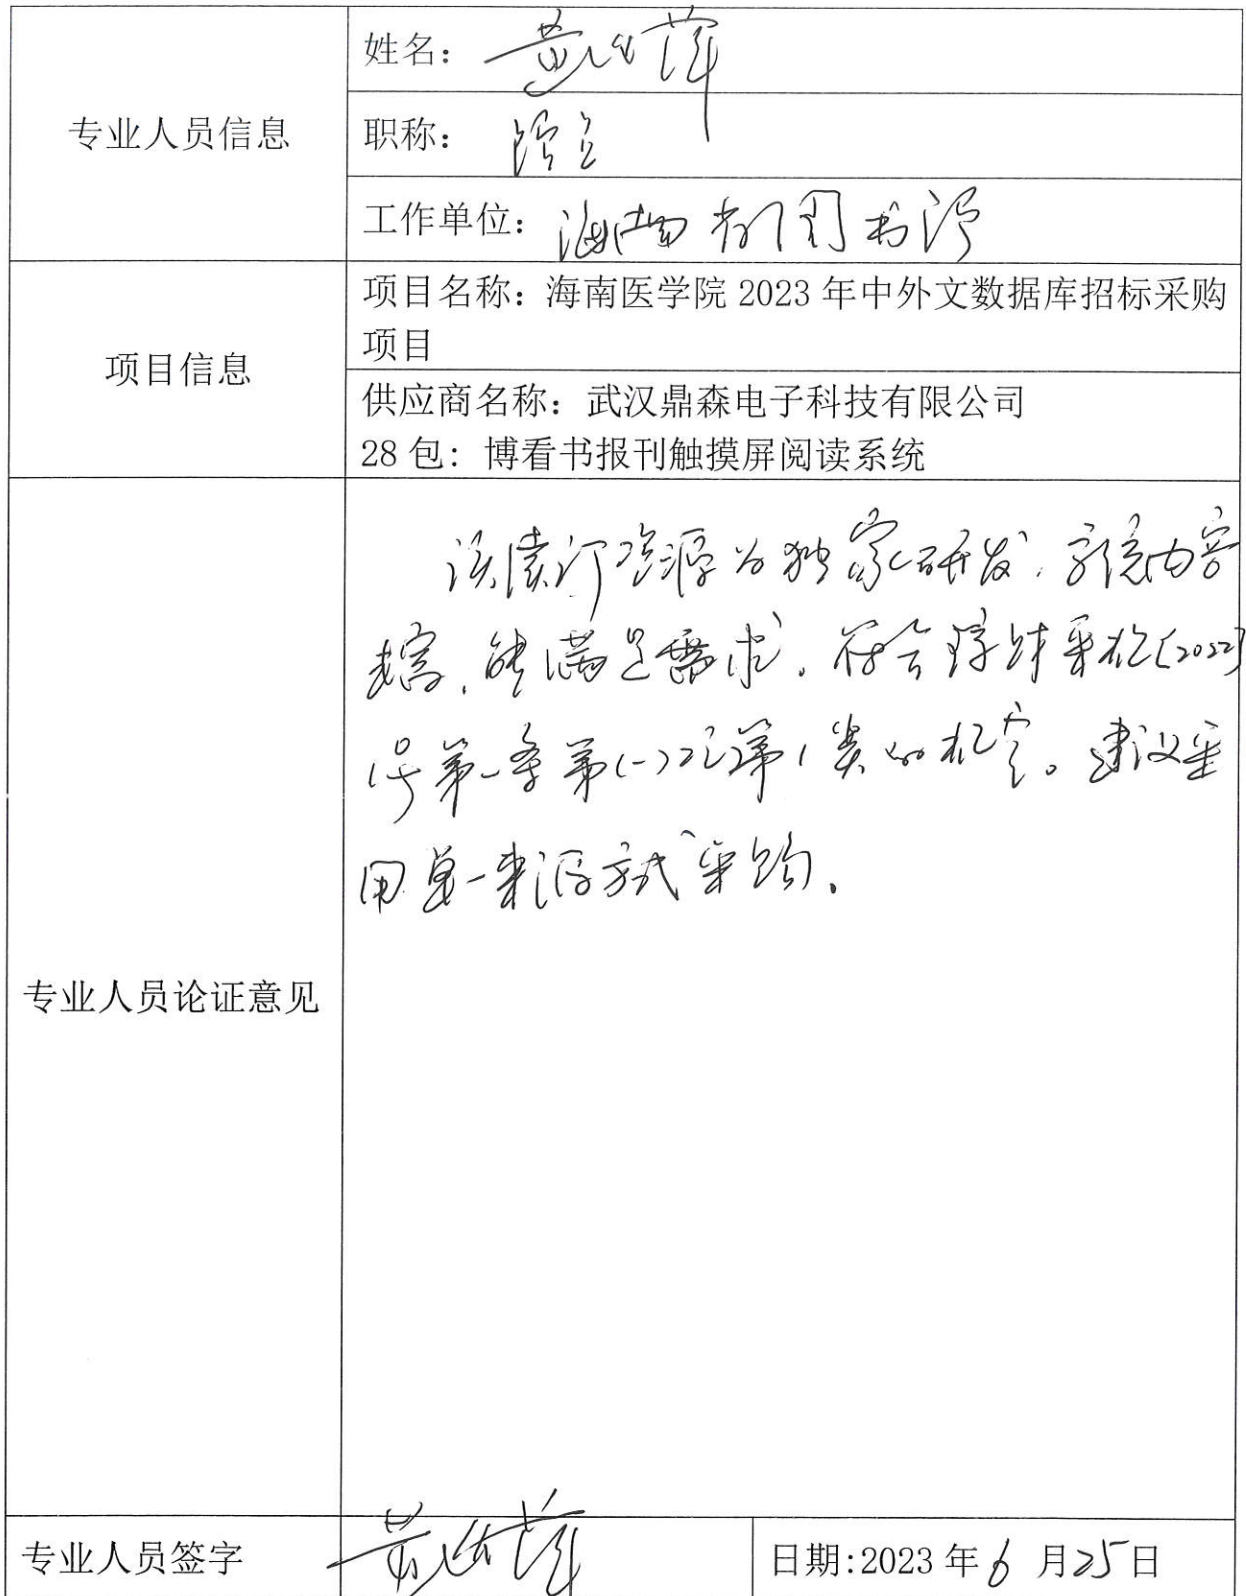 专业人员信息
姓名：黄
职称：
工作单位：海南省图书馆
项目信息
项目名称：海南医学院 2023 年中外文数据库招标采购
项目
供应商名称：武汉鼎森电子科技有限公司
28 包：博看书报刊触摸屏阅读系统
专业人员论证意见
该续订资源为独家研发，系统内容
，能满足需求，符合琼财采规[2022]
1号第一条第(一)项第1类的规定。建议采
用单一来源方式采购。
专业人员签字 黄
日期:2023 年 6 月 25 日